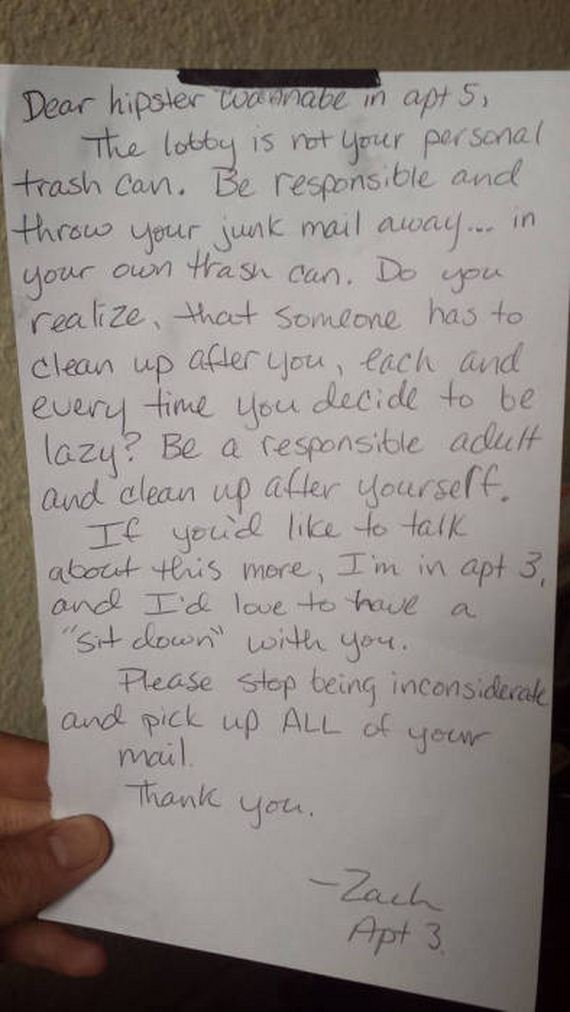 Dear hipster wannabe in apt 5,
The lobby is not your personal
trash can. Be responsible and
throw your junk mail away... in
your own trash can. Do you
realize, that someone has to
clean up after you, each and
every time you decide to be
lazy? Be a responsible adult
and clean up after yourself.
If you'd like to talk
about this more, I'm in apt 3,
and I'd love to have a
"sit down" with you.
Please stop being inconsiderate
and pick up ALL of your
mail.
Thank you.
-Zach
Apt 3.